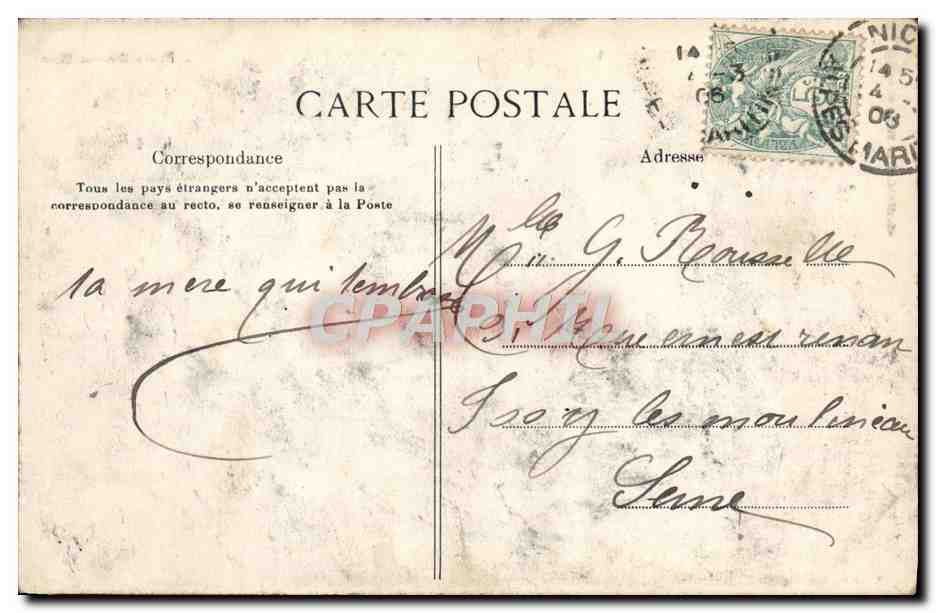 CARTE POSTALE
Correspondance
Tous les pays étrangers n'acceptent pas la
correspondance au recto, se renseigner à la Poste
ta mere qui tembrase
Adresse
Melle G. Rousselle
Rue ernest renan
Issy les moulineau
Seine
14
4 - 3
06
5c
NIC
14 5
4 -
06
ALPES MARI
CPAPHIL